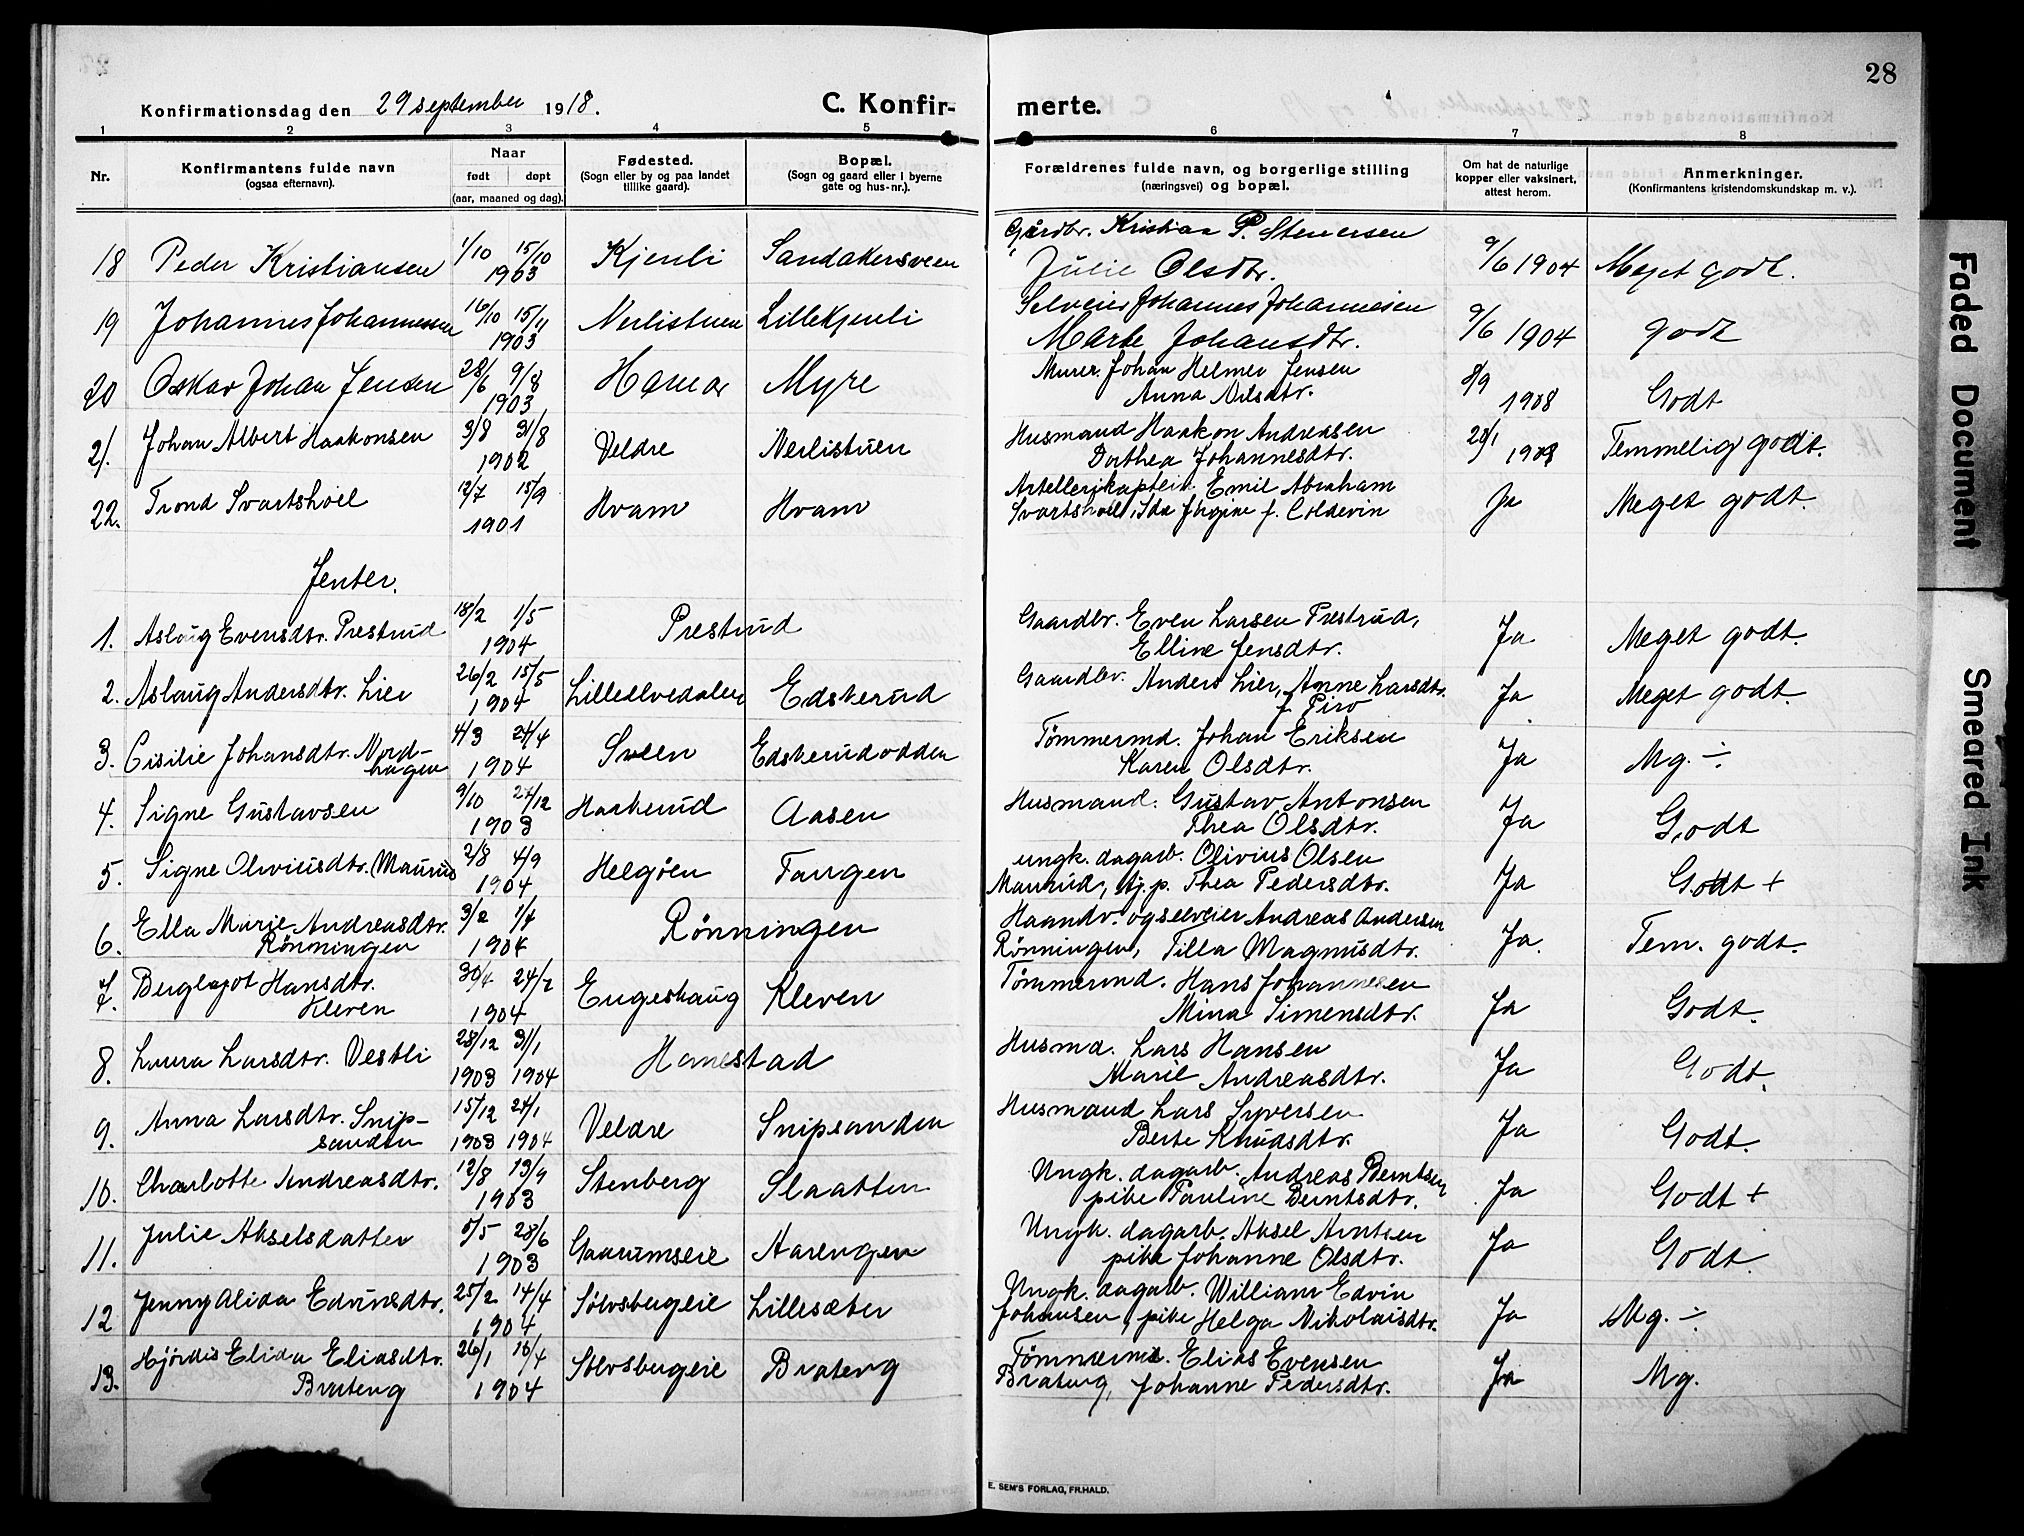 28
Konfirmationsdag den 29 september 1918.
C. Konfir- merte.
1 2 3 4 5 6 7 8
Nr.
Konfirmantens fulde navn
(ogsaa efternavn).
Naar
født døpt
(aar, maaned og dag).
Fødested.
(Sogn eller by og paa landet
tillike gaard).
Bopæl.
(Sogn og gaard eller i byerne
gate og hus-nr.).
Forældrenes fulde navn, og borgerlige stilling
(næringsvei) og bopæl.
Om hat de naturlige
kopper eller vaksinert,
attest herom.
Anmerkninger.
(Konfirmantens kristendomskundskap m. v.).
18 Peder Kristiansen 1/10 15/10 1903 Kjenli Sandakersveen Gårdbr. Kristian P. Stenersen
Julie Olsdtr. 9/6 1904 Meget godt.
19 Johannes Johannessen 16/10 15/11 1903 Nerlistuen Lillekjenli Selveier Johannes Johannesen
Marte Johansdtr. 9/6 1904 godt
20 Oskar Johan Jensen 28/6 9/8 1903 Hamar Myre Murer. Johan Helmer Jensen
Anna Nilsdtr. 8/9 1908 Godt
21. Johan Albert Haakonsen 3/8 31/8 1902 Veldre Nerlistuen Husmand Haakon Andreasen
Dorthea Johannesdtr. 28/1 Temmelig godt.
22. Trond Svartshoel 12/7 15/9 1901 Hvam Hvam Artellerikaptein. Emil Abraham
Svartshoel, Ida f. Coldevin Ja Meget godt.
Jenter.
1. Aslaug Evensdtr. Prestrud 18/2 1/5 1904 Prestrud Gaardbr. Even Larsen Prestrud,
Elline Jensdtr. Ja Meget godt.
2. Aslaug Andersdtr. Lier 26/2 15/5 1904 Lilleelvedalen Edskerud Gaardbr. Anders Lier, Anne Larsdtr.
f. Piro Ja Meget godt.
3. Cisilie Johansdtr. Nord-
hagen 4/3 24/4 1904 Sveen Edskerudodden Tømmermd. Johan Eriksen
Karen Olsdtr. Ja Mg. ÷
4. Signe Gustavsen 9/10 27/12 1903 Haakerud Aasen Husmand. Gustav Antonsen
Thea Olsdtr. Ja Godt
5. Signe Oliviusdtr. Maurud 2/8 4/9 1904 Helgøen Tangen ungk. dagarb. Olivius Olsen
Maurud, tj.p. Thea Pedersdtr. Ja Godt +
6. Ella Marie Andreasdtr.
Rønningen 3/2 1/4 1904 Rønningen Haandv. og selveier Andreas Andersen
Rønningen, Tilla Magnusdtr. Ja. Tem. godt.
7. Bergljot Hansdtr.
Kleven 30/4 24/7 1904 Engeshaug Kleven Tømmermd. Hans Johannesen
Mina Simensdtr. Ja Godt.
8. Laura Larsdtr. Vestli 28/12 31/1 1903 1904 Hanestad Husmd. Lars Hansen
Marie Andreasdtr. Ja Godt.
9. Anna Larsdtr. Snip-
sanden 15/12 24/1 1903 1904 Veldre Snipsanden Husmand Lars Syversen
Berte Knudsdtr. Ja Godt.
10. Charlotte Andreasdtr. 12/8 13/9 1903 Stenberg Slaatten Ungk. dagarb. Andreas Berntsen
pike Pauline Berntsdtr. Ja Godt +
11. Julie Akselsdatter 5/5 28/6 1903 Gaarumseie Aarengen Ungk. dagarb. Aksel Arntsen
pike Johanne Olsdtr. Ja Godt.
12 Jenny Alida Edvinsdtr. 25/2 14/4 1904 Sølvsbergeie Lillesæter Ungk. dagarb. William Edvin
Johansen, pike Helga Nikolaisdtr. Ja Mg. ÷
13. Hjørdis Elida Eliasdtr.
Brateng 26/1 10/4 1904 Sølvsbergeie Brateng Tømmermd. Elias Evensen
Brateng, Johanne Pedersdtr. Ja Mg.
E. SEM'S FORLAG, FR.HALD.
Faded Document
Smeared Ink